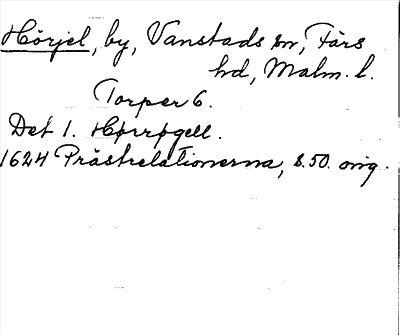 Hörjel, by, Vanstads sn, Färs
hd, Malm. l.
Torper 6.
Det 1. Hørrpgell.
1624 Prästrelationerna, s. 50. orig.